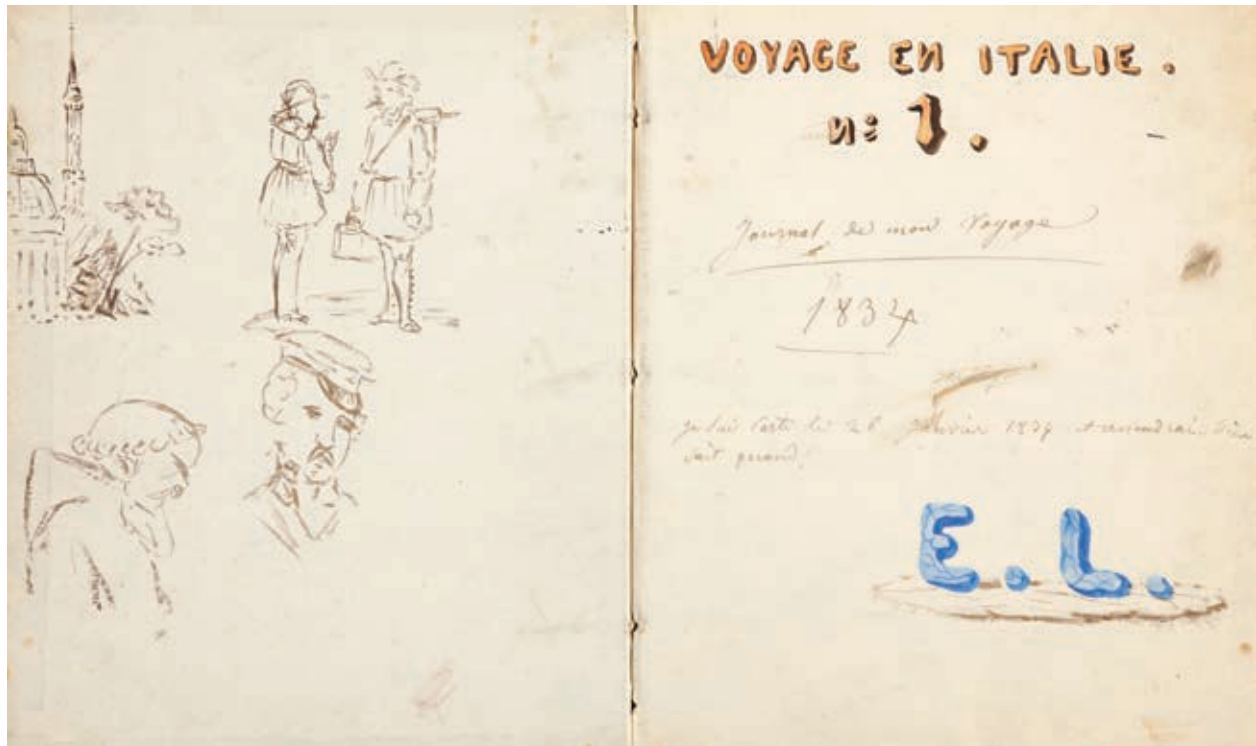 VOYAGE EN ITALIE .
N: 1 .
Journal de mon Voyage
1834
Parti le 26 Janvier 1834 et reviendrai Dieu
sait quand
E. L.